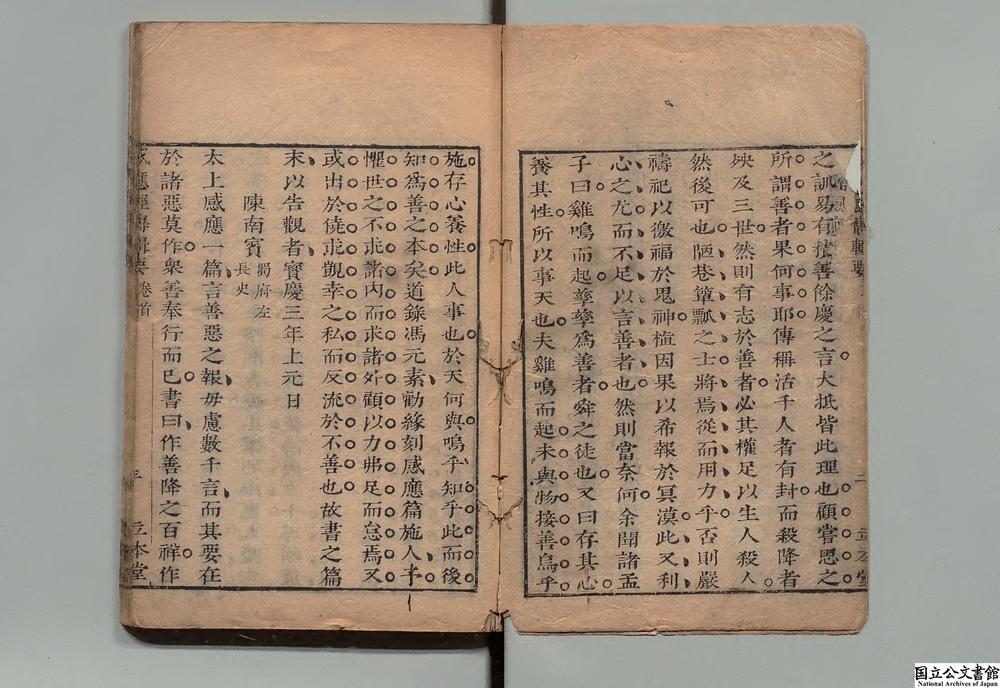 之訓易有積善餘慶之言大抵皆此理也顧嘗思之
所謂善者果何事耶傳稱活千人者有封而殺降者
殃及三世然則有志於善者必其權足以生人殺人
然後可也陋巷簞瓢之士將焉從而用力乎否則嚴
禱祀以徼福於鬼神植因果以希報於冥漠此又利
心之尤而不足以言善者也然則當奈何余聞諸孟
子曰雞鳴而起孳孳爲善者舜之徒也又曰存其心
養其性所以事天也夫雞鳴而起未與物接善烏乎
施存心養性此人事也於天何與嗚乎知乎此而後
知爲善之本矣道錄馮元素勸緣刻感應篇施人予
懼世之不求諸內而求諸外顧以力弗足而怠焉又
或出於僥求觀幸之私而反流於不善也故書之篇
末以告觀者寶慶三年上元日
陳南賓 蜀府左長史
太上感應一篇言善惡之報毋慮數千言而其要在
於諸惡莫作衆善奉行而已書曰作善降之百祥作
卷首
立本堂
国立公文書館
National Archives of Japan